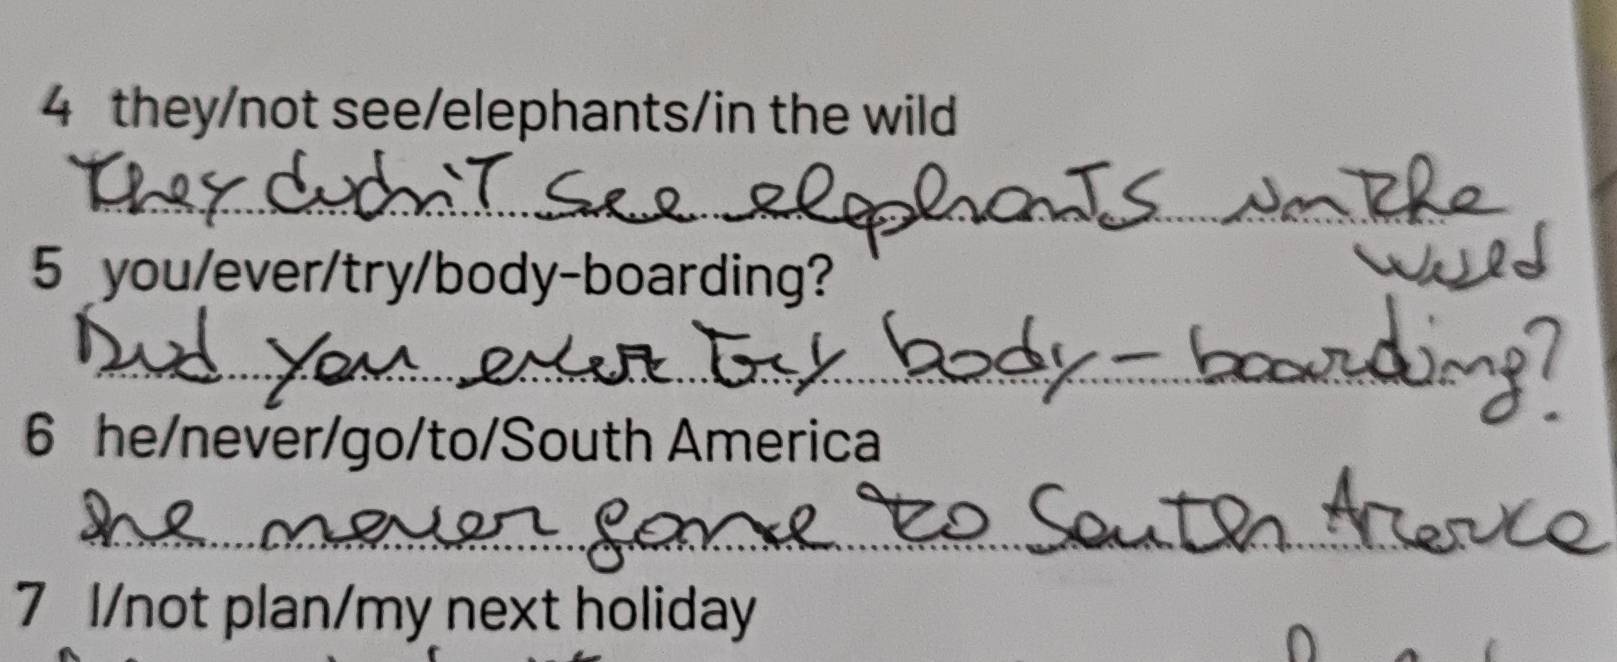 4 they/not see/elephants/in the wild
They didn't see elephants in the
wild
5 you/ever/try/body-boarding?
Did you ever try body-boarding?
6 he/never/go/to/South America
She never gone to South America
7 I/not plan/my next holiday